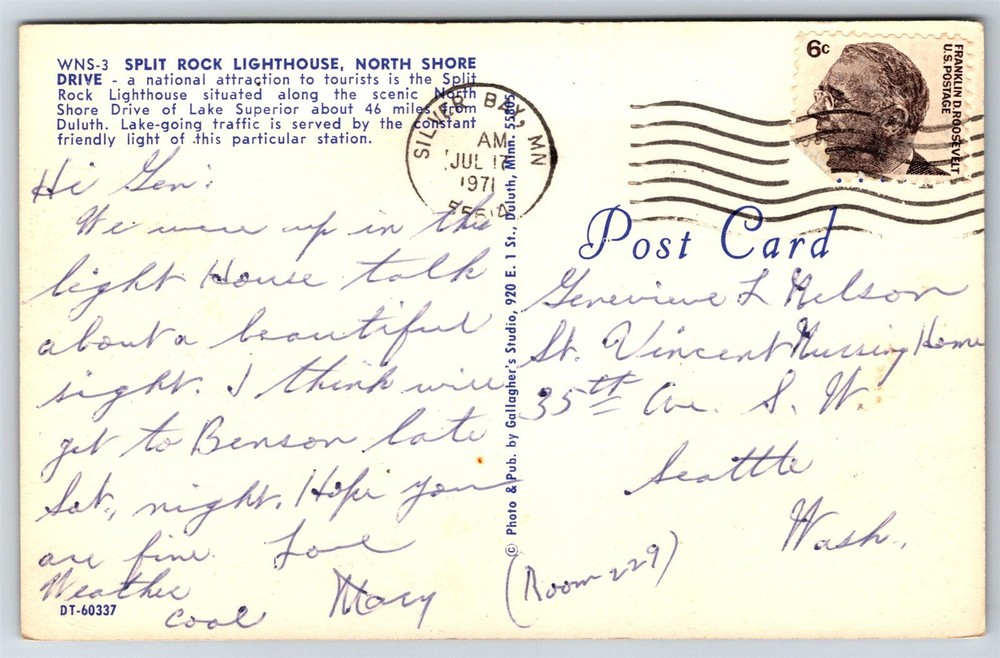 WNS-3 SPLIT ROCK LIGHTHOUSE, NORTH SHORE
DRIVE - a national attraction to tourists is the Split
Rock Lighthouse situated along the scenic North
Shore Drive of Lake Superior about 46 miles from
Duluth. Lake-going traffic is served by the constant
friendly light of this particular station.
Hi Gen:
We were up in this
light House talk
about a beautiful
sight. I think will
get to Benson late
Sat., night. Hope you
are fine. Love
Weather
cool Mary
DT-60337
© Photo & Pub. by Gallagher's Studio, 920 E. 1 St., Duluth, Minn. 55805
SILVER BAY, MN
AM
JUL 17
1971
55614
6c
FRANKLIN D. ROOSEVELT
U.S. POSTAGE
Post Card
Genevieve L Nelson
St. Vincent Nursing Home
35th Ave. S. W.
Seattle
Wash.
(Room 229)